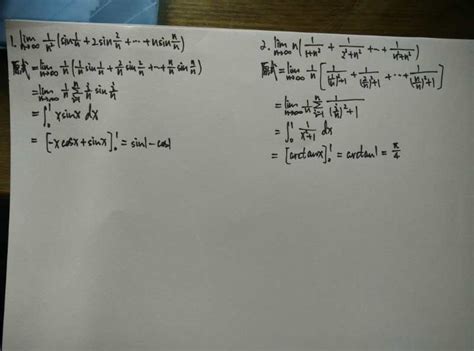 1. lim_{n→∞} 1/n² (sin 1/n + 2sin 2/n + ⋯ + n sin n/n)
原式 = lim_{n→∞} 1/n (1/n sin 1/n + 2/n sin 2/n + ⋯ + n/n sin n/n)
= lim_{n→∞} 1/n Σ_{i=1}^{n} i/n sin i/n
= ∫₀¹ x sinx dx
= [-x cosx + sinx]₀¹ = sin1 - cos1
2. lim_{n→∞} n (1/(1+n²) + 1/(2²+n²) + ⋯ + 1/(n²+n²))
原式 = lim_{n→∞} 1/n [1/((1/n)²+1) + 1/((2/n)²+1) + ⋯ + 1/((n/n)²+1)]
= lim_{n→∞} 1/n Σ_{i=1}^{n} 1/((i/n)²+1)
= ∫₀¹ 1/(x²+1) dx
= [arctanx]₀¹ = arctan1 = π/4